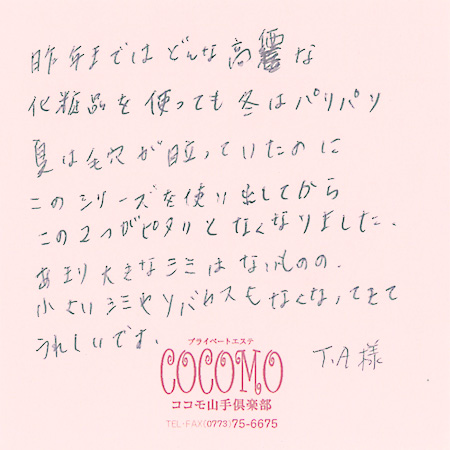 昨年まではどんな高価な
化粧品を使っても冬はパリパリ
夏は毛穴が目立っていたのに
このシリーズを使い出してから
この2つがピタリとなくなりました.
あまり大きなシミはないものの.
小さいシミやソバカスもなくなってきて
うれしいです.
T.A様
プライベートエステ
COCOMO
ココモ山手倶楽部
TEL・FAX(0773)75-6675